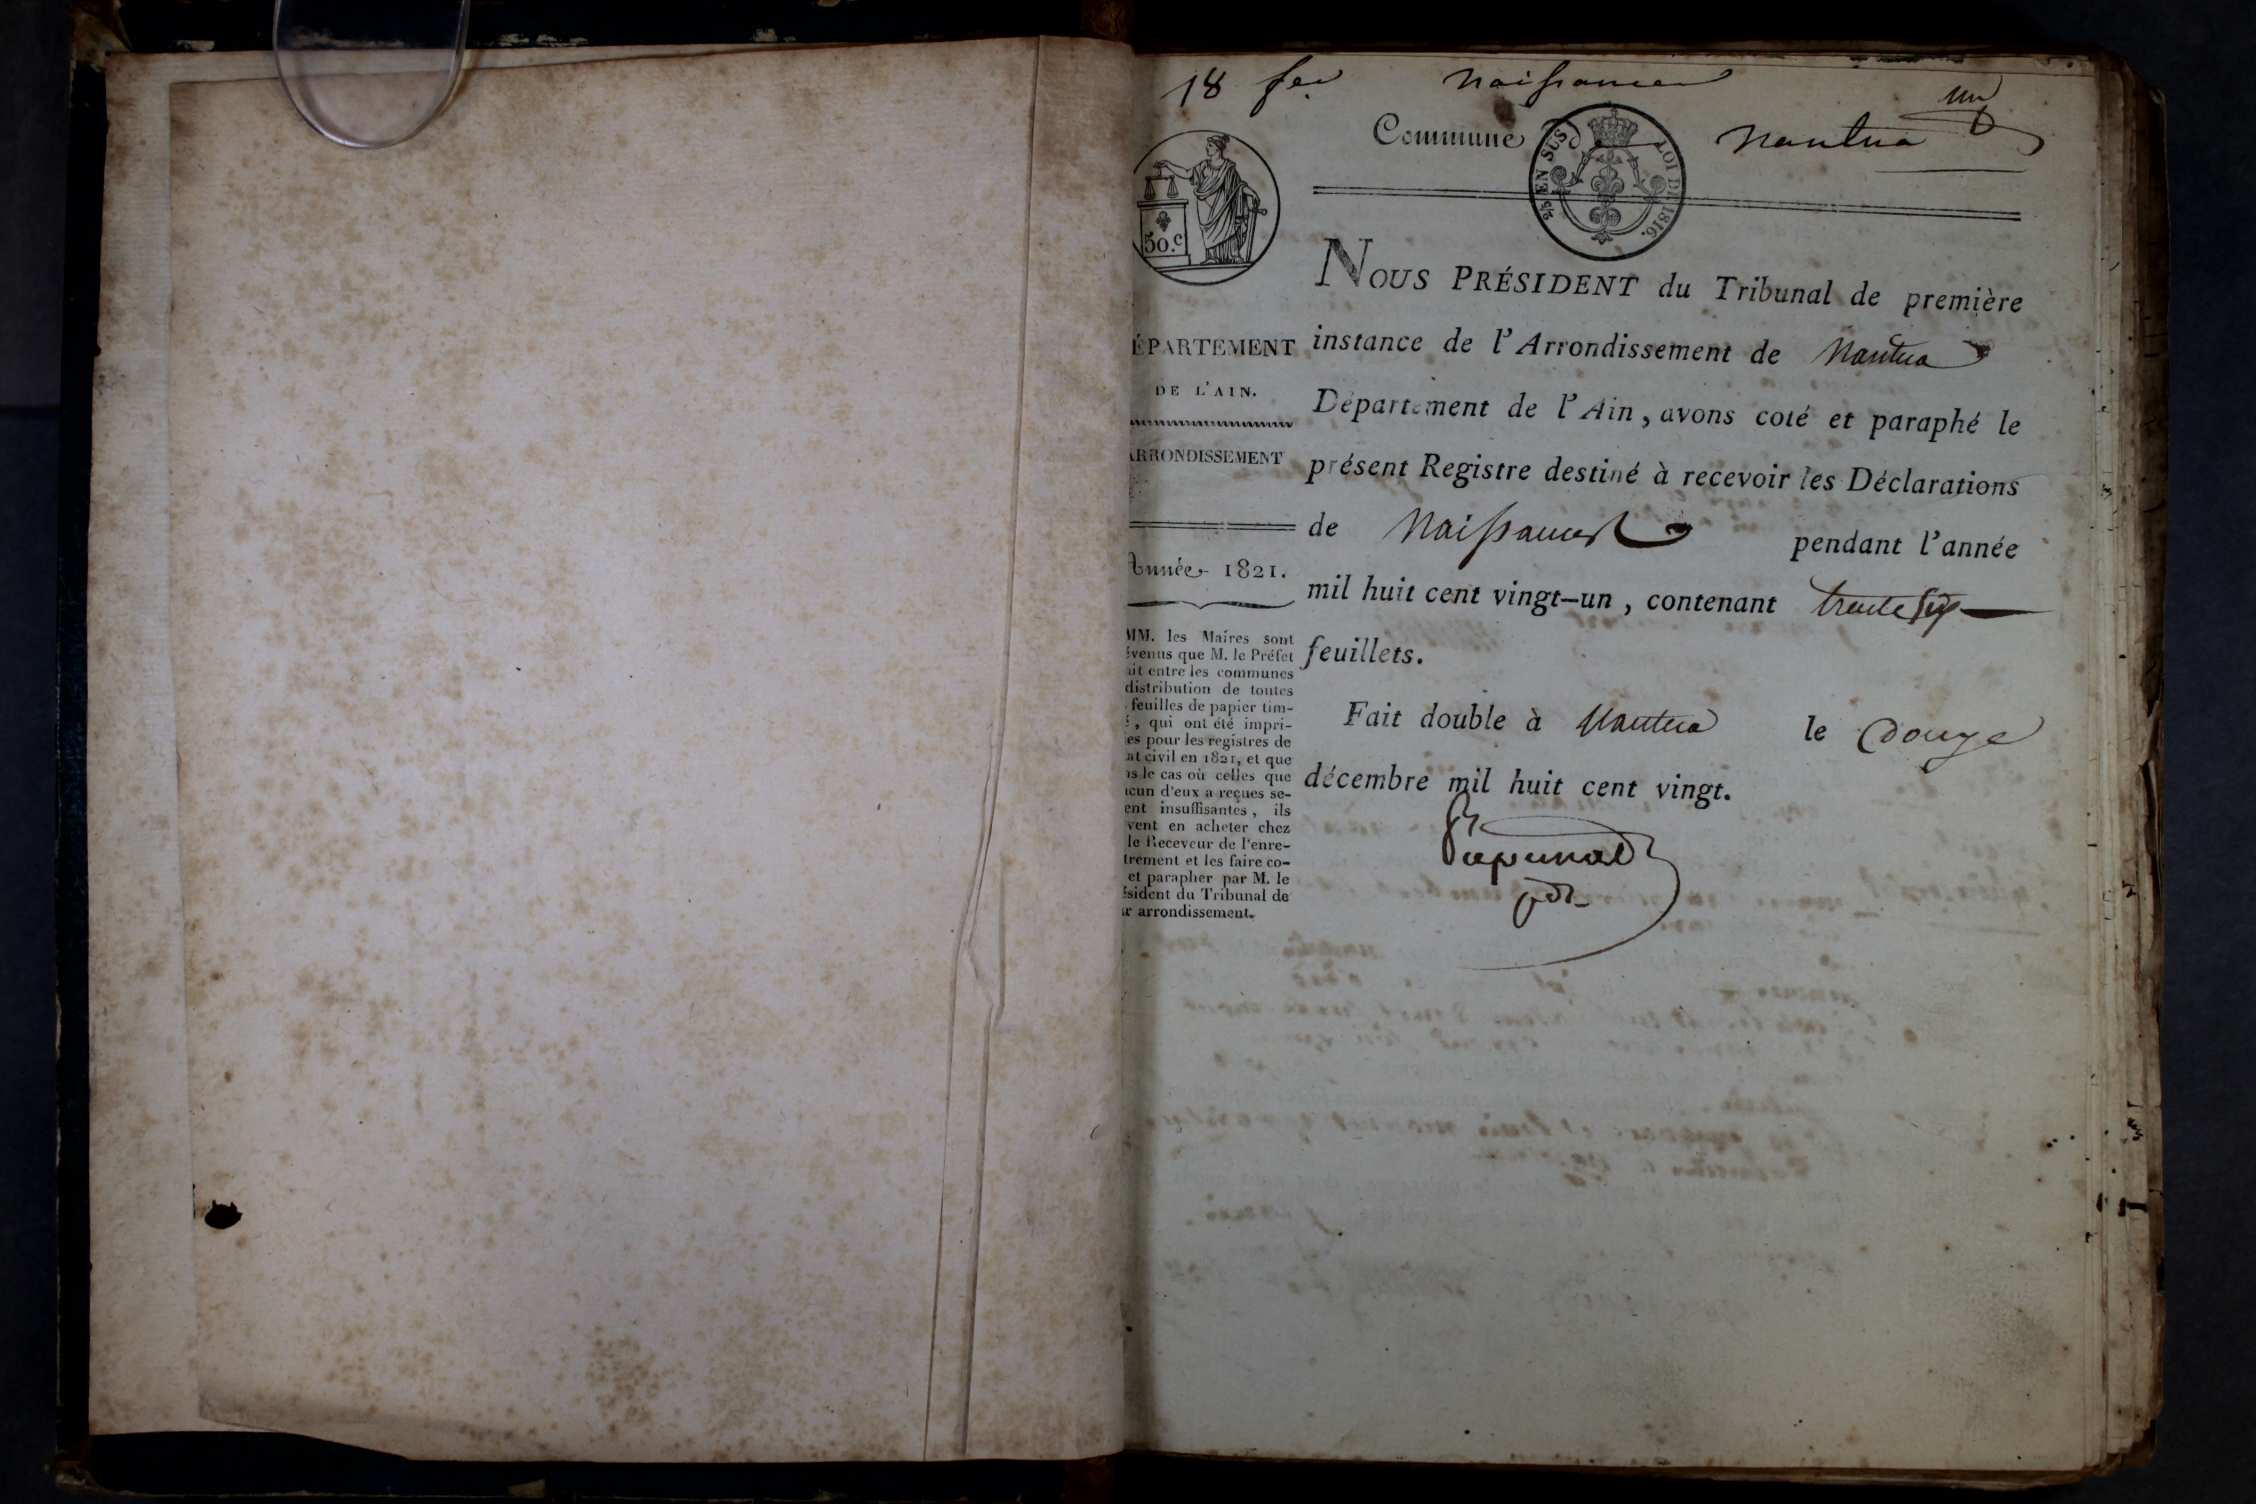 18 fer Naissances
un
Commune de Nantua
2/5 EN SUS
LOI DE 1816.
50.c
ÉPARTEMENT
DE L'AIN.
ARRONDISSEMENT
Année 1821.
MM. les Maires sont
évenus que M. le Préfet
ait entre les communes
distribution de toutes
feuilles de papier tim-
é, qui ont été impri-
es pour les registres de
at civil en 1821, et que
ns le cas où celles que
acun d'eux a reçues se-
ent insuffisantes, ils
vent en acheter chez
le Receveur de l'enre-
trement et les faire co-
et parapher par M. le
ésident du Tribunal de
ur arrondissement.
NOUS PRÉSIDENT du Tribunal de première
instance de l'Arrondissement de Nantua
Département de l'Ain, avons coté et paraphé le
présent Registre destiné à recevoir les Déclarations
de Naissances pendant l'année
mil huit cent vingt-un, contenant trente six
feuillets.
Fait double à Nantua le Douze
décembre mil huit cent vingt.
pdt